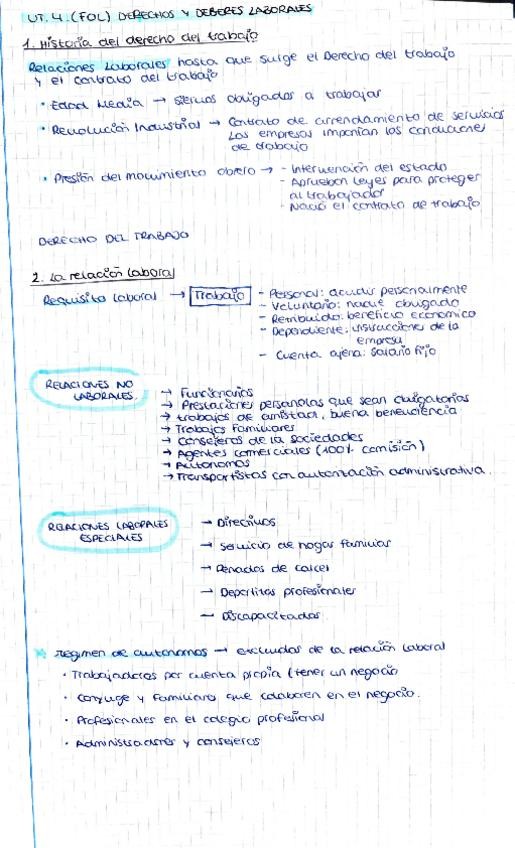 UT.4.(FOL) DERECHOS Y DEBERES LABORALES
1. Historia del derecho del trabajo
Relaciones Laborales hasta que surge el Derecho del trabajo
y el contrato del trabajo
• Edad Media → siervos obligados a trabajar
• Revolución Industrial → Contrato de arrendamiento de servicios
Las empresas imponían las condiciones
de trabajo
• Presión del movimiento obrero → - Intervención del estado
- Aprueban leyes para proteger
al trabajador
- Nació el contrato de trabajo
DERECHO DEL TRABAJO
2. La relación laboral
Requisito laboral → Trabajo - Personal: acudir personalmente
- Voluntario: nadie obligado
- Retribuido: beneficio economico
- Dependiente: instrucciones de la
empresa
- Cuenta ajena: salario fijo
RELACIONES NO
LABORALES.
→ Funcionarios
→ Prestaciones personales que sean obligatorias
→ trabajos de amistad, buena benevolencia
→ Trabajos Familiares
→ consejeros de la sociedades
→ Agentes comerciales (100% comisión)
→ Autonomos
→ Transportistas con autorización administrativa.
RELACIONES LABORALES
ESPECIALES
→ Directivos
→ servicio de hogar familiar
→ Penados de carcel
→ Deportitas profesionales
→ Discapacitados
* Regimen de autonomos → excluidos de la relación laboral
• Trabajadores por cuenta propia (tener un negocio
• Conyuge y familiares que colaboren en el negocio.
• Profesionales en el colegio profesional
• Administradores y consejeros